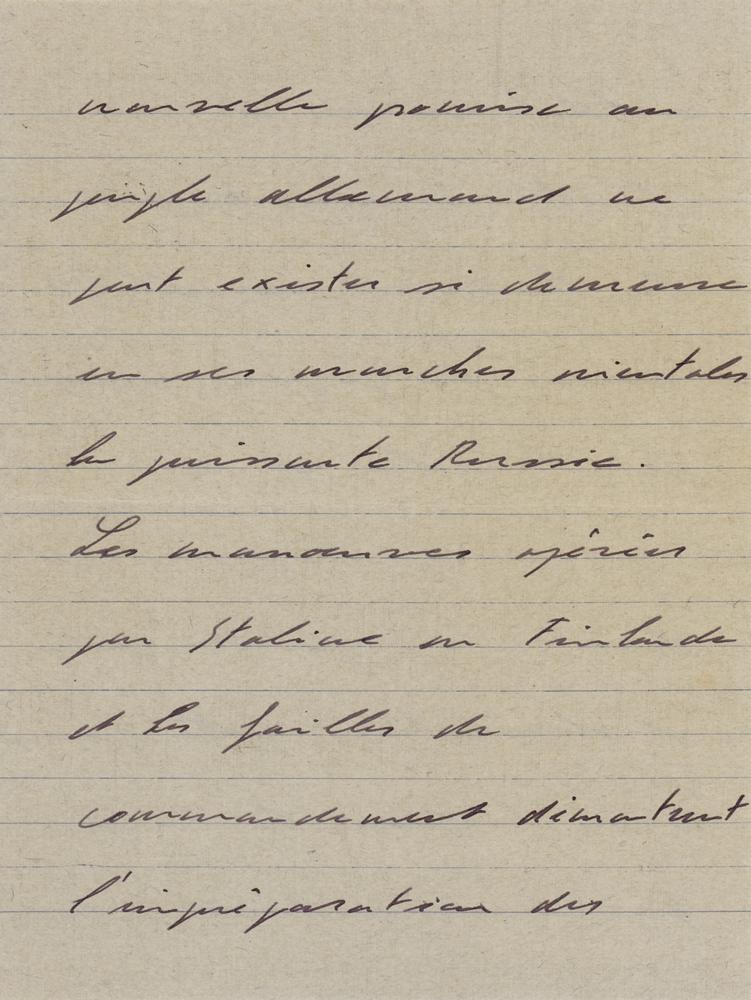 nouvelle promise au
peuple allemand ne
peut exister si demeure
en ses marches orientales
la puissante Russie.
Les manoeuvres opérées
par Staline en Finlande
et les failles de
commandement démontrent
l'impréparation des